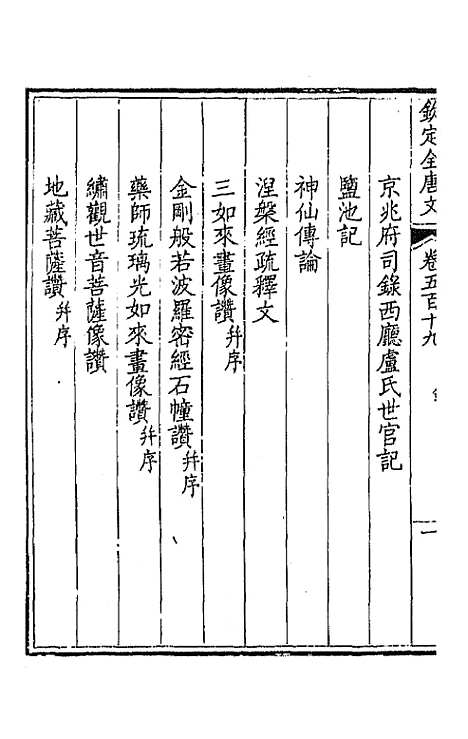 欽定全唐文 卷五百十九 一
京兆府司錄西廳盧氏世官記
鹽池記
神仙傳論
涅槃經疏釋文
三如來畫像讚并序
金剛般若波羅密經石幢讚并序
藥師琉璃光如來畫像讚并序
繡觀世音菩薩像讚
地藏菩薩讚并序